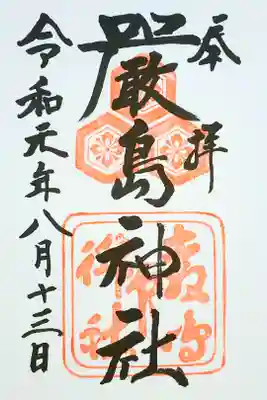 奉拝
厳島神社
令和元年八月十三日
厳島
神社